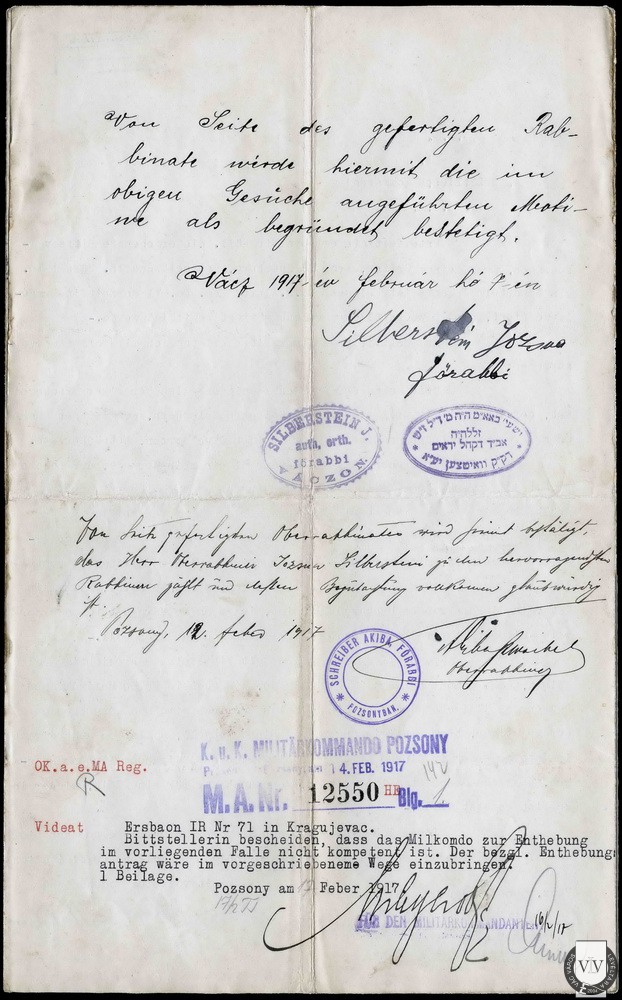 Von Seite des gefertigten Rab-
binate werde hiermit die im
obigen Gesuche angeführten Moti-
ve als begründet bestetigt.
Vácz 1917-év február hó 7-én
Silberstein Jozsua
förabbi
SILBERSTEIN J.
auth. orth.
förabbi
VÁCZON.
ישעי' באאמו"ה
זללה"ה
אב"ד דקהל יראים
Von Seite gefertigten Oberrabbinates wird hiemit bestätigt,
das Herr Oberrabbiner Jozsua Silberstein zu den hervorragendsten
Rabbiner zählt und dessen Begutachtung vollkommen glaubwürdig
ist.
Pozsony, 12. feber 1917
Akiba Schreiber
Oberrabbiner
SCHREIBER AKIBA FŐRABBI
POZSONYBAN.
K. u. K. MILITÄRKOMMANDO POZSONY
14. FEB. 1917
M.A. Nr. 12550 Blg. 1
OK.a.e.MA Reg.
Videat Ersbaon IR Nr 71 in Kragujevac.
Bittstellerin bescheiden, dass das Milkomdo zur Enthebung
im vorliegenden Falle nicht kompetent ist. Der bezgl. Enthebungs
antrag wäre im vorgeschriebeneme Wege einzubringen.
1 Beilage.
Pozsony am Feber 1917
FÜR DEN MILITÄRKOMMANDANTEN
16/2/17
VÁC VÁROS LEVÉLTÁRA
VL